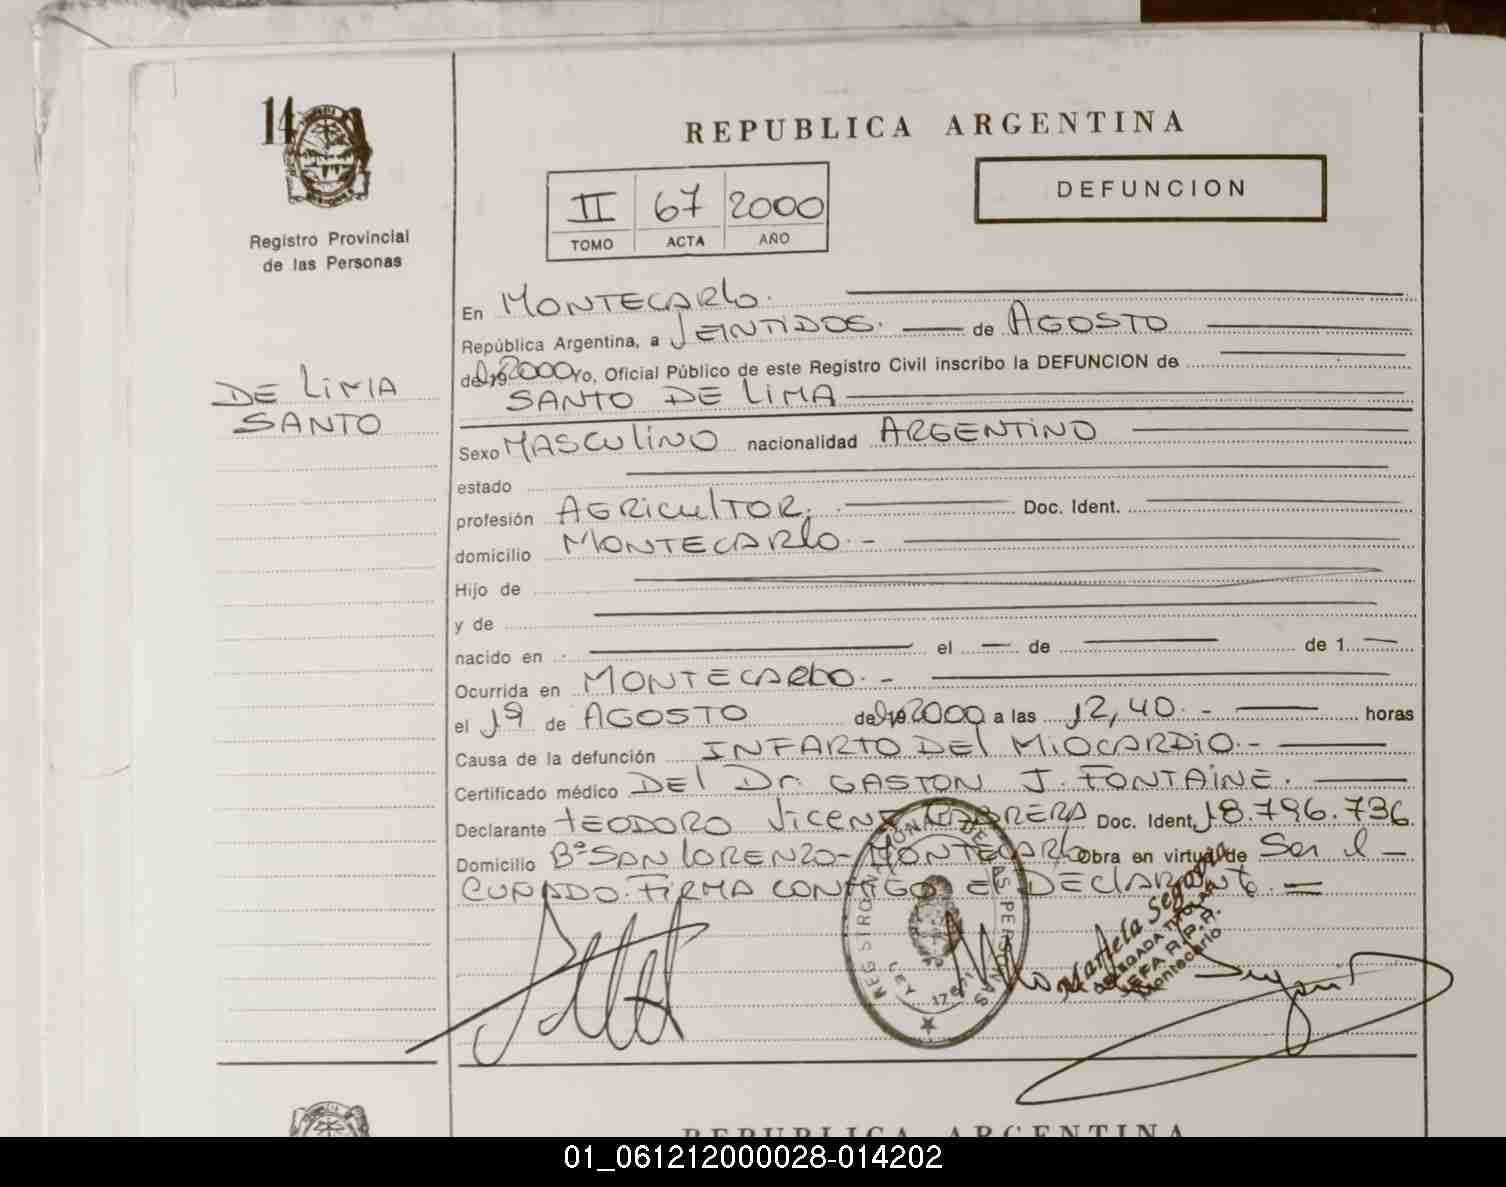 14
REPUBLICA ARGENTINA
II 67 2000
TOMO ACTA AÑO
DEFUNCION
Registro Provincial
de las Personas
DE LIMA
SANTO
En MONTECARLO.
República Argentina, a VEINTIDOS. de AGOSTO
del 2000 Yo, Oficial Público de este Registro Civil inscribo la DEFUNCION de
SANTO DE LIMA
Sexo MASCULINO nacionalidad ARGENTINO
estado
profesión AGRICULTOR. Doc. Ident.
domicilio MONTECARLO. -
Hijo de
y de
nacido en el de de 1
Ocurrida en MONTECARLO. -
el 19 de AGOSTO del 2000 a las 12,40. - horas
Causa de la defunción INFARTO DEL MIOCARDIO. -
Certificado médico DEl Dr. GASTON J. FONTAINE.
Declarante TEODORO VICENTE CABRERA Doc. Ident. 18.796.736
Domicilio Bº SAN LORENZO - MONTECARLO Obra en virtud de Ser el -
CUÑADO. FIRMA CONMIGO EL DECLARANTE. =
REGISTRO NACIONAL DE LAS PERSONAS
LEY 17.671
Mariela Segovia
DELEGADA TITULAR
JEFA R.P.P.
Montecarlo
REPUBLICA ARGENTINA
01_061212000028-014202